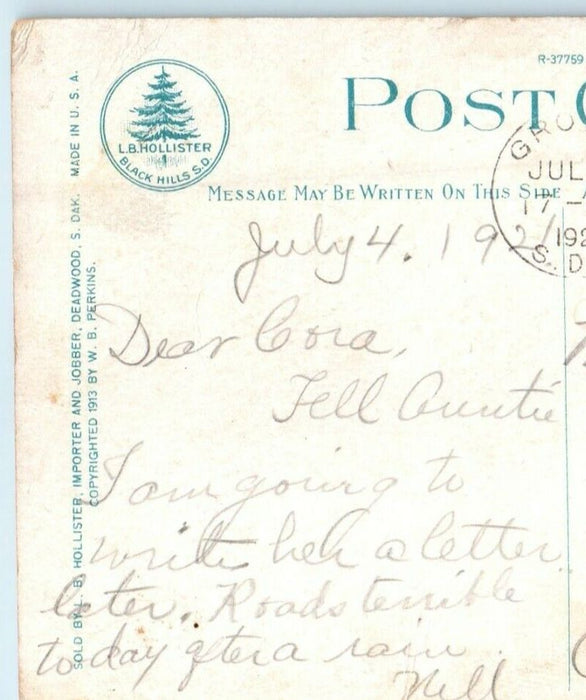 R-37759
POST
L.B. HOLLISTER
BLACK HILLS S.D.
MESSAGE MAY BE WRITTEN ON THIS SIDE
GRO
JUL
17 -
192
S. D
SOLD BY L. B. HOLLISTER, IMPORTER AND JOBBER, DEADWOOD, S. DAK. MADE IN U. S. A.
COPYRIGHTED 1913 BY W. B. PERKINS.
July 4. 1921
Dear Cora,
Tell Auntie
I am going to
write her a letter
later. Roads terrible
to day after a rain.
Nell